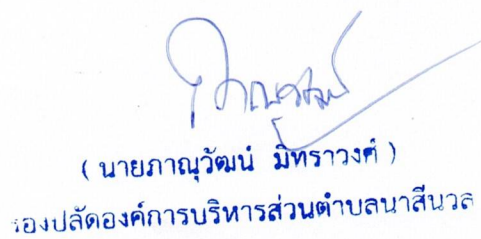 ภาณุวัฒน์
( นายภาณุวัฒน์ มิทราวงศ์ )
รองปลัดองค์การบริหารส่วนตำบลนาสีนวล